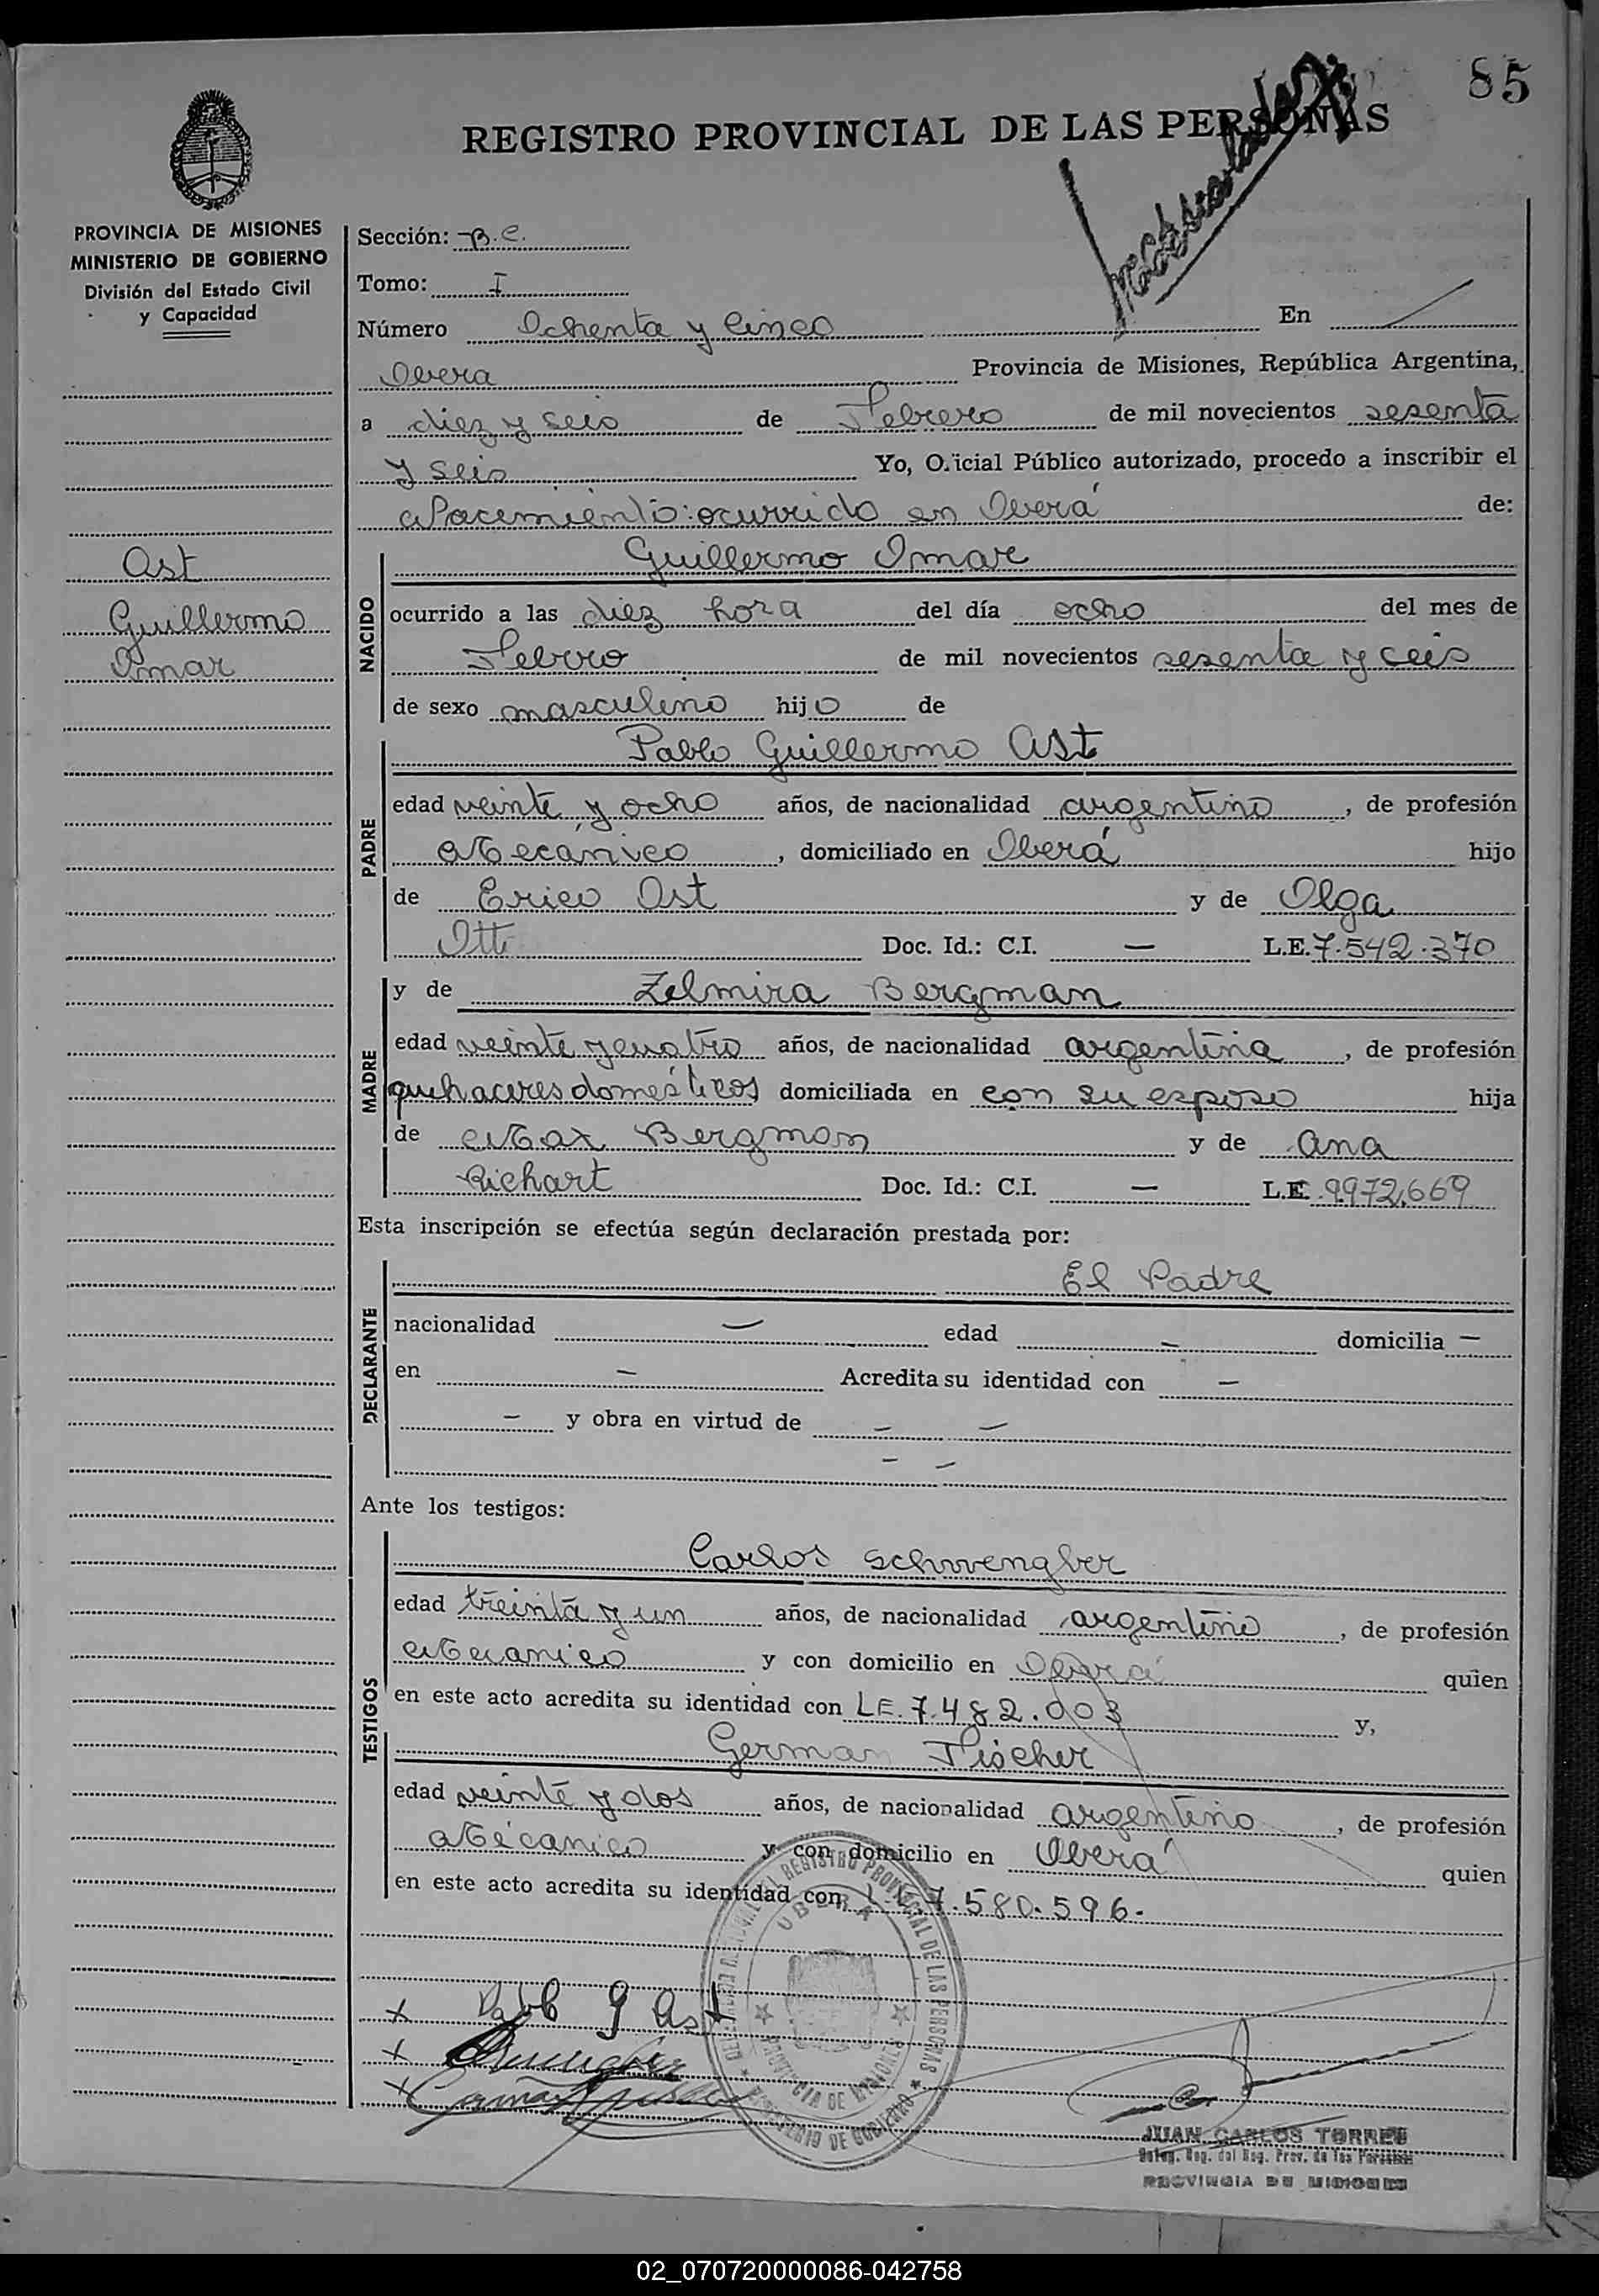 85
REGISTRO PROVINCIAL DE LAS PERSONAS
PROVINCIA DE MISIONES
MINISTERIO DE GOBIERNO
División del Estado Civil
y Capacidad
Ast
Guillermo
Omar
Sección: B.C.
Tomo: I
Número Ochenta y Cinco En
Obera Provincia de Misiones, República Argentina,
a diez y seis de Febrero de mil novecientos sesenta
y seis Yo, Oficial Público autorizado, procedo a inscribir el
Nacemiento: ocurrido en Oberá de:
NACIDO
Guillermo Omar
ocurrido a las diez hora del día ocho del mes de
Febrro de mil novecientos sesenta y ceis
de sexo masculino hijo de
PADRE
Pablo Guillermo Ast
edad veinte y ocho años, de nacionalidad argentino, de profesión
Mecánico, domiciliado en Oberá hijo
de Erico Ast y de Olga
Ott Doc. Id.: C.I. — L.E. 7.542.370
MADRE
y de Zelmira Bergman
edad veinte y cuatro años, de nacionalidad argentina, de profesión
quehaceres domésticos domiciliada en con su esposo hija
de Max Bergman y de Ana
Richart Doc. Id.: C.I. — L.E. 9.972.669
Esta inscripción se efectúa según declaración prestada por:
DECLARANTE
El Padre
nacionalidad — edad — domicilia —
en — Acredita su identidad con —
— y obra en virtud de — —
— —
Ante los testigos:
TESTIGOS
Carlos Schwengber
edad treinta y un años, de nacionalidad argentino, de profesión
Mecanico y con domicilio en Oberá quien
en este acto acredita su identidad con L.E. 7.482.003 y,
German Fischer
edad veinte y dos años, de nacionalidad argentino, de profesión
Mécanico y con domicilio en Oberá quien
en este acto acredita su identidad con L.E. 7.580.596.
REGISTRO PROVINCIAL DE LAS PERSONAS
OBERA
PROVINCIA DE MISIONES
MINISTERIO DE GOBIERNO
x Pablo G Ast
x
x
JUAN CARLOS TORRES
Deleg. Reg. del Reg. Prov. de las Personas
PROVINCIA DE MISIONES
02_070720000086-042758